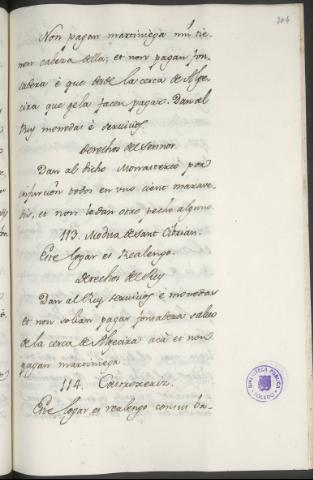 306
Non pagan martiniega nin tie-
nen cabeza della, et non pagan fon-
sadera è que desde la cerca de Alge-
cira que gela facen pagar. Dan al
Rey monedas è servicios.
Derechos del Sennor.
Dan al dicho Monasterio por
infurcion todos en uno cient marave-
dis, et non le dan otro pecho alguno.
113. Medina de Sant Cibrian.
Este logar es Realengo.
Derechos del Rey
Dan al Rey servicios è monedas
et non solian pagar fonsadera salvo
de la cerca de Algecira acà et non
pagan martiniega.
114.
Este logar es realengo con sus ba-
BIBLIOTECA PUBLICA
TOLEDO